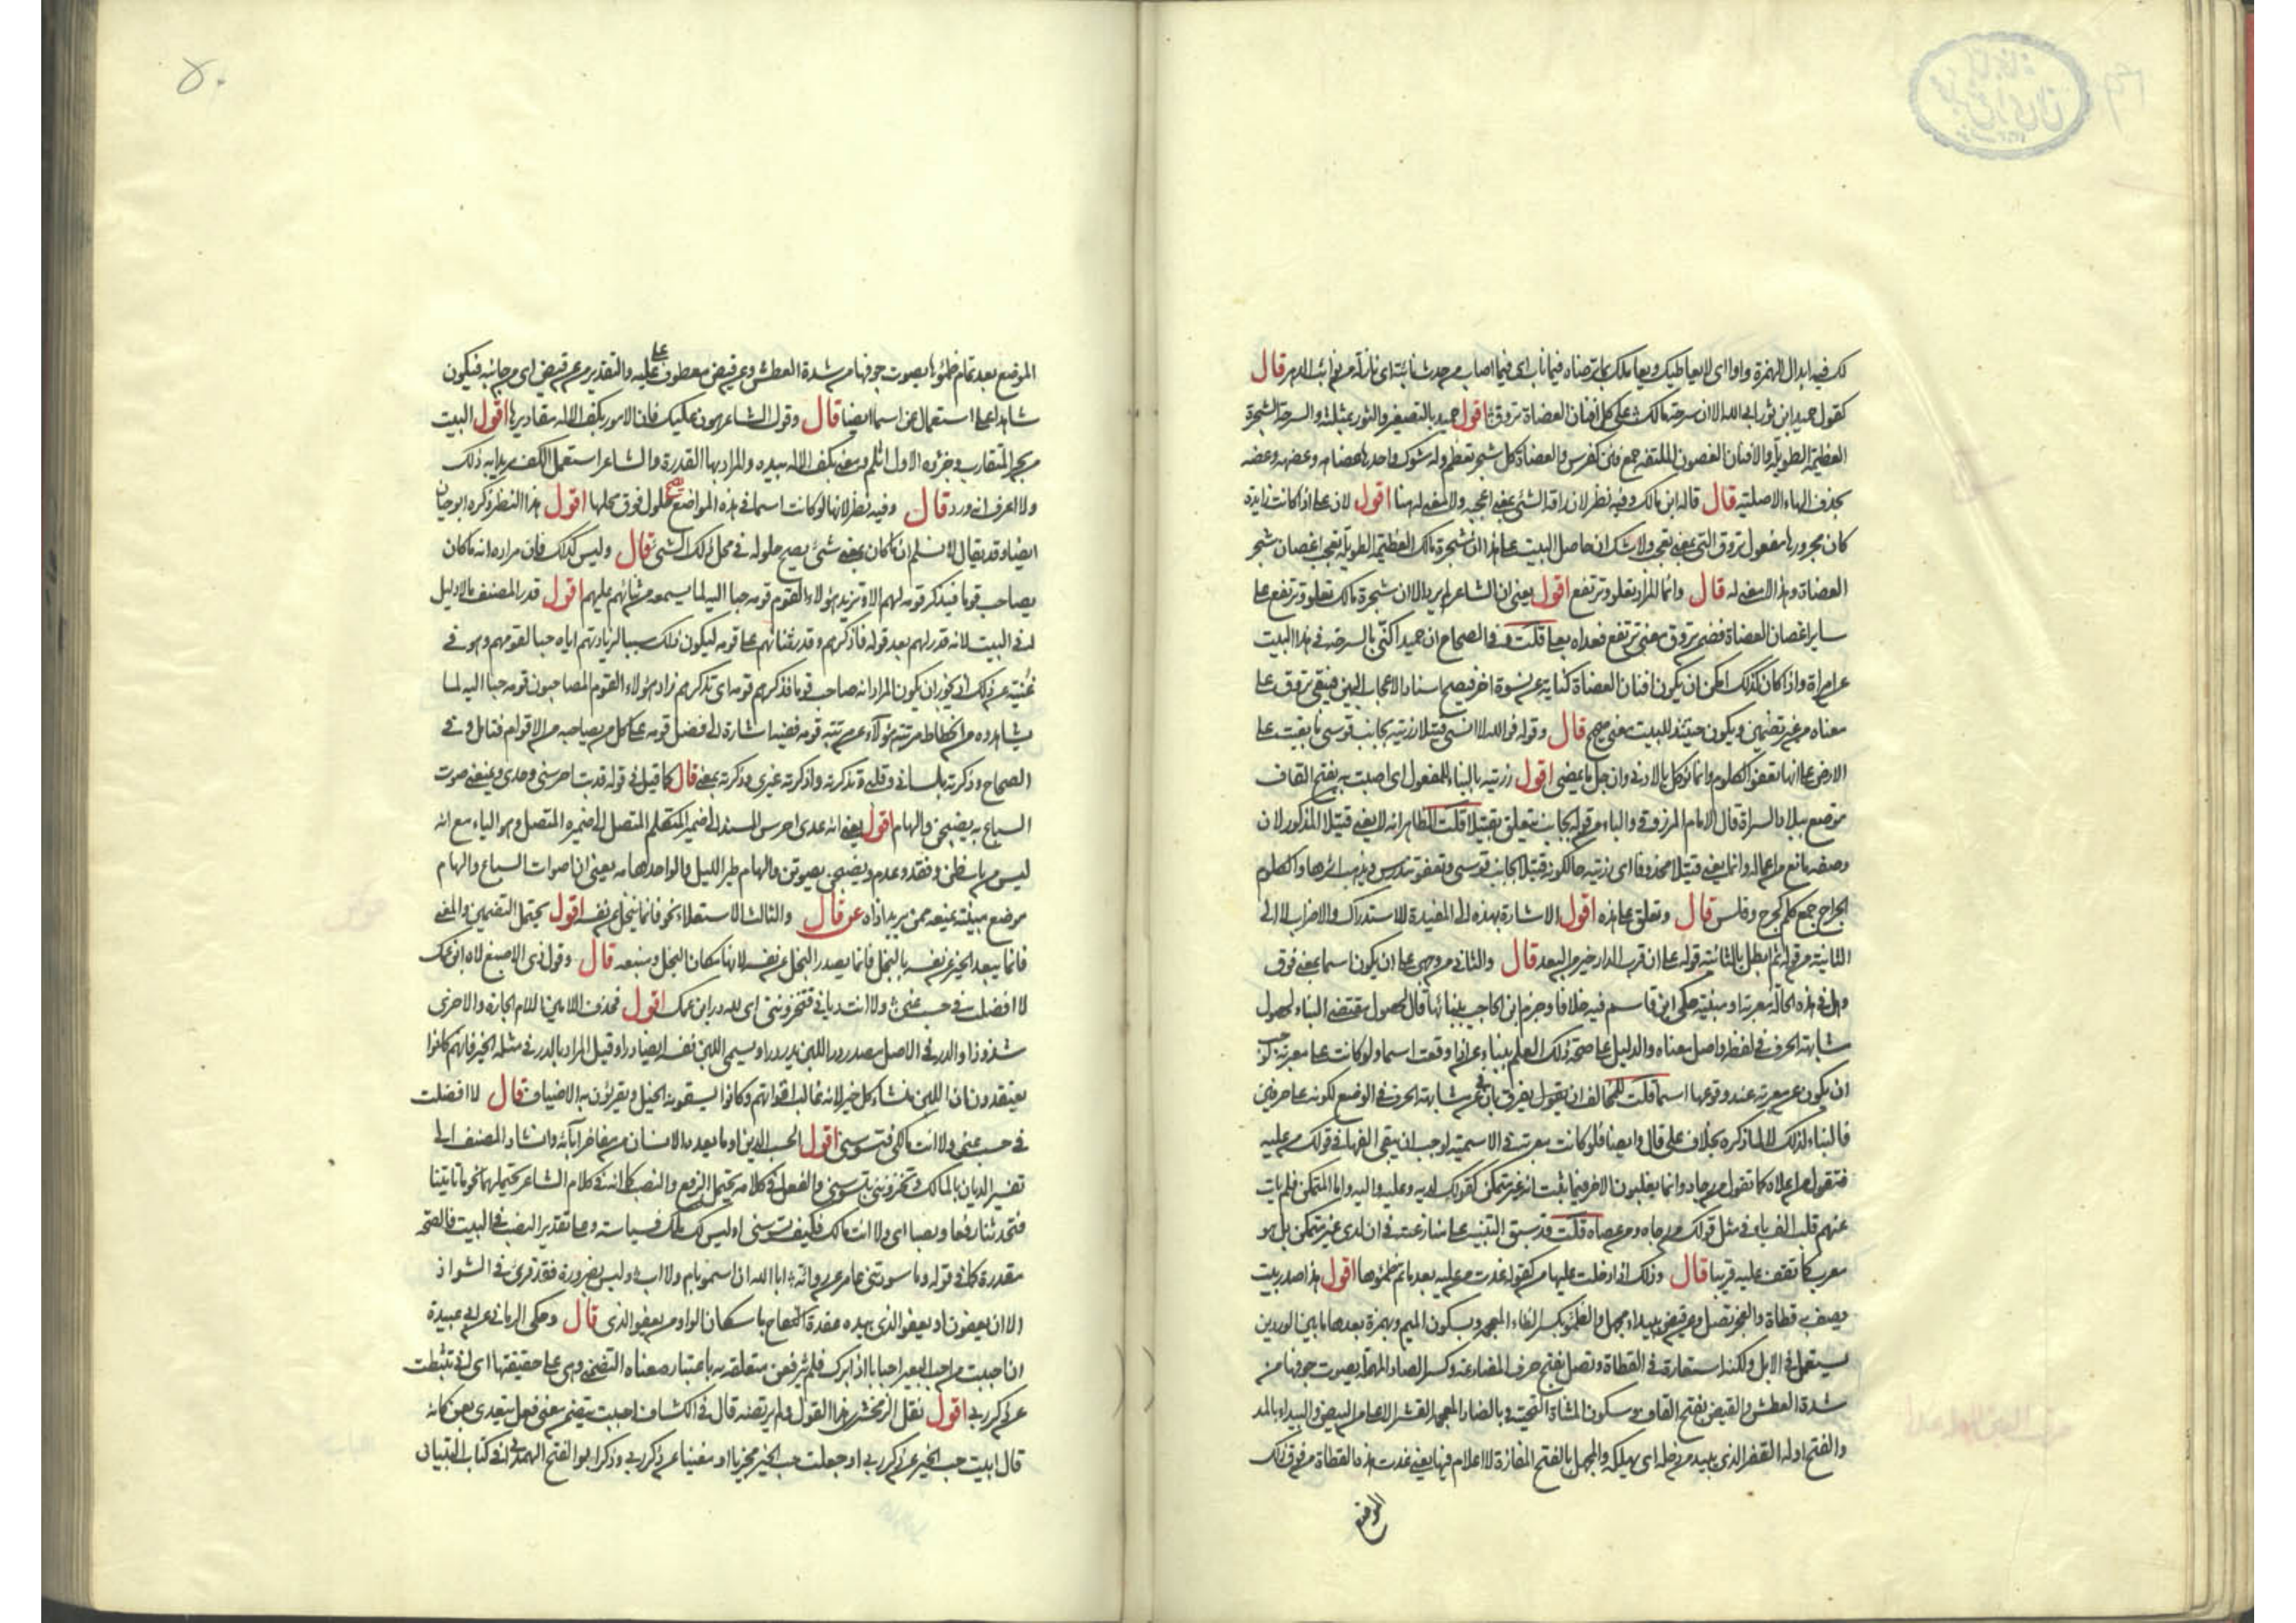 لك فيه ابدال الهمزة واوا اى لا يعاطيك ويعاملك بما ترضاه فيما ناب اى فيما اصاب من حدث نائبة اى نازلة من نوائب الدهر قال
كقول حميد ابن ثور ابى الله الا ان سرحة مالك على كل افنان العضاة تروق اقول حميد بالتصغير والثور بمثلثة والسرحة الشجرة
العظيمة الطويلة والافنان الغصون الملتفة جمع فنن كفرس والعضاة كل شجر تعظم وله شوك واحدها عضاهة وعضهة وعضه
بحذف الهاء الاصلية قال قاله ابن مالك وفيه نظر لان راقه الشئ بمعنى اعجبه ولا معنى له هنا اقول لان على اذا كانت زايدة
كان مجرورها مفعول تروق التى بمعنى تعجب ولا شك ان حاصل البيت على هذا ان شجرة مالك العظيمة الطويلة تعجب اغصان شجر
العضاة وهذا لا معنى له قال وانما المراد تعلو وترتفع اقول يعنى ان الشاعر لم يرد الا ان شجرة مالك تعلو وترتفع على
ساير اغصان العضاة فضمن تروق معنى ترتفع فعداه بعلى قلت وفى الصحاح ان حميدا كنى بالسرحة فى هذا البيت
عن امراة واذا كان كذلك امكن ان يكون افنان العضاة كناية عن نسوة اخر فيصح اسناد الاعجاب اليهن فيبقى تروق على
معناه من غير تضمين ويكون حينئذ للبيت معنى صحيح قال وقوله فوالله لا انسى قتيلا رزيته بجانب قوسى ما بقيت على
الارض على انها تعفو الكلوم وانما نوكل بالادنى وان جل ما يمضى اقول رزيته بالبناء للمفعول اى اصبت به بفتح القاف
موضع ببلاد السراة قال الامام المرزوقى والباء من قوله بجانب يتعلق بقتيلا قلت الظاهر انه لا يعنى قتيلا المذكور لان
وصفه مانع من اعماله وانما يعنى قتيلا محذوفا اى رزيته حال كونه قتيلا بجانب قوسى وتعفو تندرس ويذهب اثرها والكلوم
الجراح جمع كلم كجرح وفلس قال وتعلق على هذه اقول الاشارة بهذه الى المفيدة للاستدراك والاضراب لا الى
الثانية من قوله ثم ابطل بالثانية قوله على ان قرب الدار خير من البعد قال والثانى من وجهى على ان يكون اسما بمعنى فوق
وهل فى هذه الحالة معربة او مبنية حكى ابن قاسم فيه خلافا وجزم ابن الحاجب ببنائها قال لحصول مقتضى البناء لحصول
مشابهة الحرف فى لفظه واصل معناه والدليل على صحة ذلك العلم ببناء عن اذا وقعت اسما ولو كانت على معربة لوجب
ان يكون عن معربة عند وقوعها اسما قلت للمخالف ان يقول يفرق بان فى عن مشابهة الحرف فى الوضع لكونه على حرفين
فالبناء لذلك لا لما ذكره بخلاف على قال وايضا فلو كانت معربة فى الاسمية لوجب ان يبقى الفها فى قولك من عليه
فتقول من علاه كما تقول من رحاه وانما يقلبون الاخر فيما يثبت انه غير متمكن كقولك لديه وعليه واليه واما المتمكن فلم يات
عنهم قلب الف ياء فى مثل قولك من رحاه ومن عصاه قلت قد سبق التنبيه على منازعته فى ان لدى غير متمكن بل هو
معرب كما تقف عليه قريبا قال وذلك اذا دخلت عليها من كقوله غدت من عليه بعد ما تم ظمئوها اقول هذا صدر بيت
وصف به قطاة والعجز تصل وعن قيض ببيداء مجهل والظمئو بكسر الظاء المعجمة وبسكون الميم وبهمزة بعدها ما بين الوردين
يستعمل فى الابل ولكنه استعاره فى القطاة وتصل بفتح حرف المضارعة وكسر الصاد المهملة يصوت جوفها من
شدة العطش والقيض بفتح القاف وسكون المثناة التحتية وبالضاد المعجمة القشر الاعلى من البيض والبيداء بالمد
والفتح اوله القفر الذى يبيد من دخله اى يهلكه والمجهل بالفتح المفازة لا اعلام فيها يعنى غدت هذه القطاة من فوق ذلك
الموضع
٥٠
الموضع بعد تمام ظمئوها يصوت جوفها من شدة العطش وعن قيض معطوف على عليه والتقدير من عن قيض اى من جانبه فيكون
شاهدا على استعمال عن اسما ايضا قال وقول الشاعر هون عليك فان الامور بكف الاله مقاديرها اقول البيت
من بحر المتقارب وجزؤه الاول اثلم ومعنى بكف الاله بيده والمراد بها القدرة والشاعر استعمل الكف مريدا به ذلك
ولا اعرف انه ورد قال وفيه نظر لانها لو كانت اسما فى هذه المواضع صح حلول فوق محلها اقول هذا النظر ذكره ابو حيان
ايضا وقد يقال لا نسلم ان ما كان بمعنى شئ يصح حلوله فى محل ذلك الشئ قال وليس كذلك فان مراده انه ما كان
يصاحب قوما فيذكر قومه لهم الا ويزيد هؤلاء القوم قومه حبا اليه لما يسمعه من ثنائهم عليهم اقول قدر المصنف ما لا دليل
له فى البيت لانه قدر لهم بعد قوله فاذكرهم وقدر ثنائهم على قومه ليكون ذلك سببا لزيادتهم اياه حبا لقومهم وهو فى
غنية عن ذلك اذ يجوز ان يكون المراد انه صاحب قوما فذكرهم قومه اى تذكرهم فزاد هؤلاء القوم المصاحبون قومه حبا اليه لما
يشاهده من انحطاط مرتبة هؤلاء عن مرتبة قومه ففيه اشارة الى فضل قومه على كل من يصاحبه من الاقوام فتامل وفى
الصحاح وذكرته بلسانى وقلبى وتذكرته واذكرته غيرى وذكرته بمعنى قال كما قيل فى قوله قد بت احرسنى وحدى ويمنعنى صوت
السباع به يضبحن والهام اقول يعنى انه عدى احرس المسند الى ضمير المتكلم المتصل الى ضميره المتصل وهو الياء مع انه
ليس من باب ظن وفقد وعدم ويضبحن يصوتن والهام طير الليل والواحد هامه يعنى ان اصوات السباع والهام
موضع مبيته يمنعه ممن يريد اذاه عن قال والثالث الاستعلاء نحو فانما يبخل عن نفسه اقول يحتمل التضمين والمعنى
فانما يبعد الخير عن نفسه بالبخل فانما يصدر البخل عن نفسه لانها مكان البخل ومنبعه قال وقول ذى الاصبع لاه ابن عمك
لا افضلت فى حسب عنى ولا انت ديانى فتخزونى اى لله در ابن عمك اقول فحذف اللامين اللام الجارة والاخرى
شذوذا والدر فى الاصل مصدر در اللبن يدر درا ويسمى اللبن نفسه ايضا درا وقيل المراد بالدر فى مثله الخير فانهم كانوا
يعتقدون ان اللبن منشاء كل خير لانه غالب اقواتهم وكانوا يسقونه الخيل ويقرؤن به الاضياف قال لا افضلت
فى حسب عنى ولا انت مالكى فتسوسنى اقول الحسب الدين او ما يعده الانسان من مفاخر آبائه وانشاد المصنف الى
تفسير الديان بالمالك وتخزونى بتسوسنى والفعل فى كلامه يحتمل الرفع والنصب كما انت فى كلام الشاعر تحتملهما نحو ما تاتينا
فتحدثنا رفعا ونصبا اى ولا انت مالك فكيف تسوسنى او ليس لك ملك فسياسة وعلى تقدير النصب فى البيت فالفتحة
مقدرة كما فى قوله وما سودتنى عامر عن وراثة ابى الله ان اسمو بام ولا اب وليس بضرورة فقد قرئ فى الشواذ
الا ان يعفون او يعفو الذى بيده عقدة النكاح باسكان الواو من يعفو الذى قال وحكى الرمانى عن ابى عبيدة
ان احببت من احب البعير احبابا اذا برك فلم يثر فعن متعلقة به باعتبار معناه التضمنى وهى على حقيقتها اى انى تثبطت
عن ذكر ربى اقول نقل الزمخشرى هذا القول ولم يرتضه قال فى الكشاف احببت مضمن معنى فعل يتعدى بعن كانه
قال انبت حب الخير عن ذكر ربى او جعلت حب الخير مجزيا او مغنيا عن ذكر ربى وذكر ابو الفتح الهمدانى فى كتاب التبيان